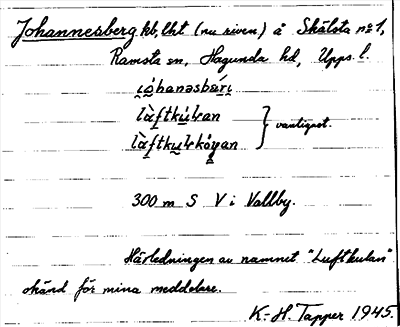 Johannesberg kb, lht (nu riven) å Skälsta nr 1,
Ramsta sn, Hagunda hd, Upps. l.
vanligast.
300 m S V i Vallby.
Härledningen av namnet "Luftkulan"
okänd för mina meddelare.
K-H. Tapper 1945.